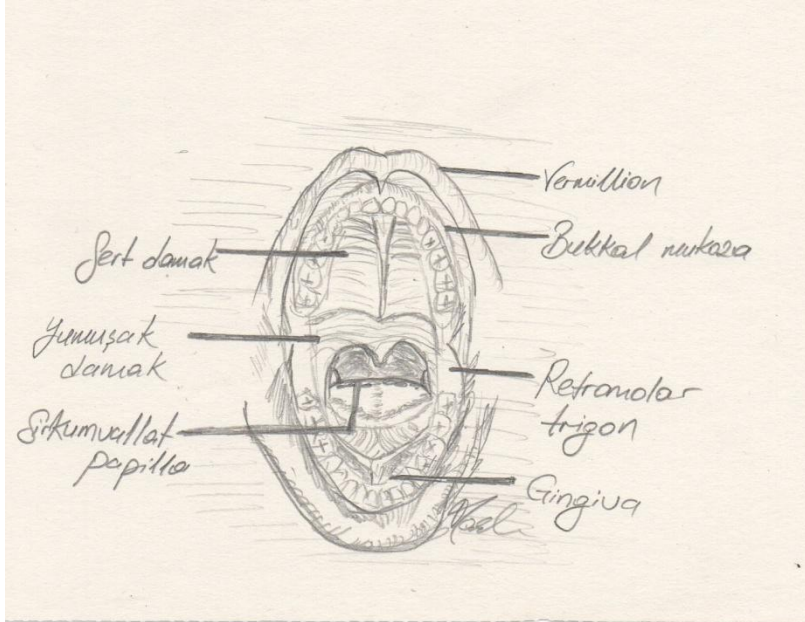 Vermillion
Bukkal mukoza
Sert damak
Yumuşak
damak
Retromolar
trigon
Sirkumvallat
papilla
Gingiva